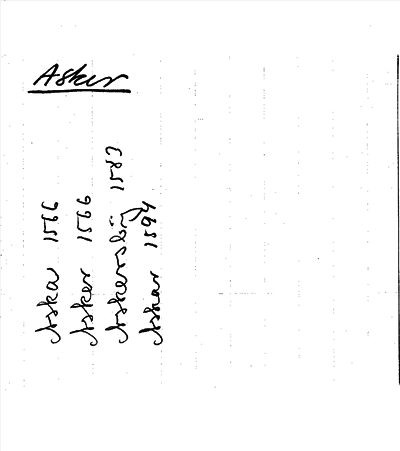 Asker
Aska 1566
Asker 1566
Askersby 1583
Askar 1594